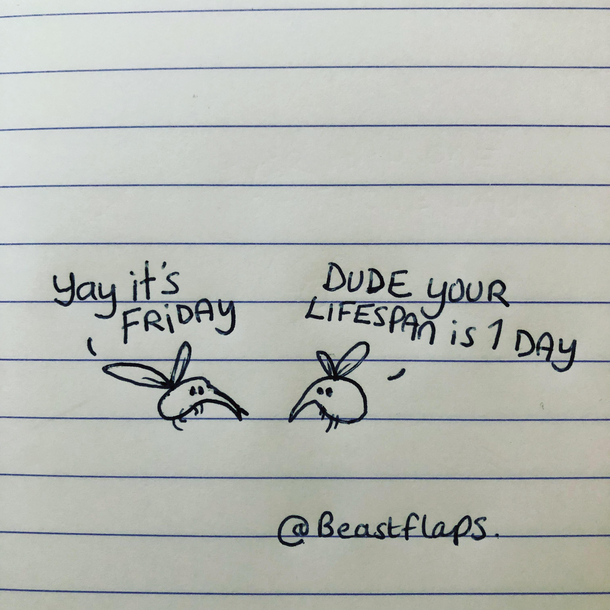 Yay it's
FRiDAY
DUDE YOUR
LIFESPAN is 1 DAY
@Beastflaps.